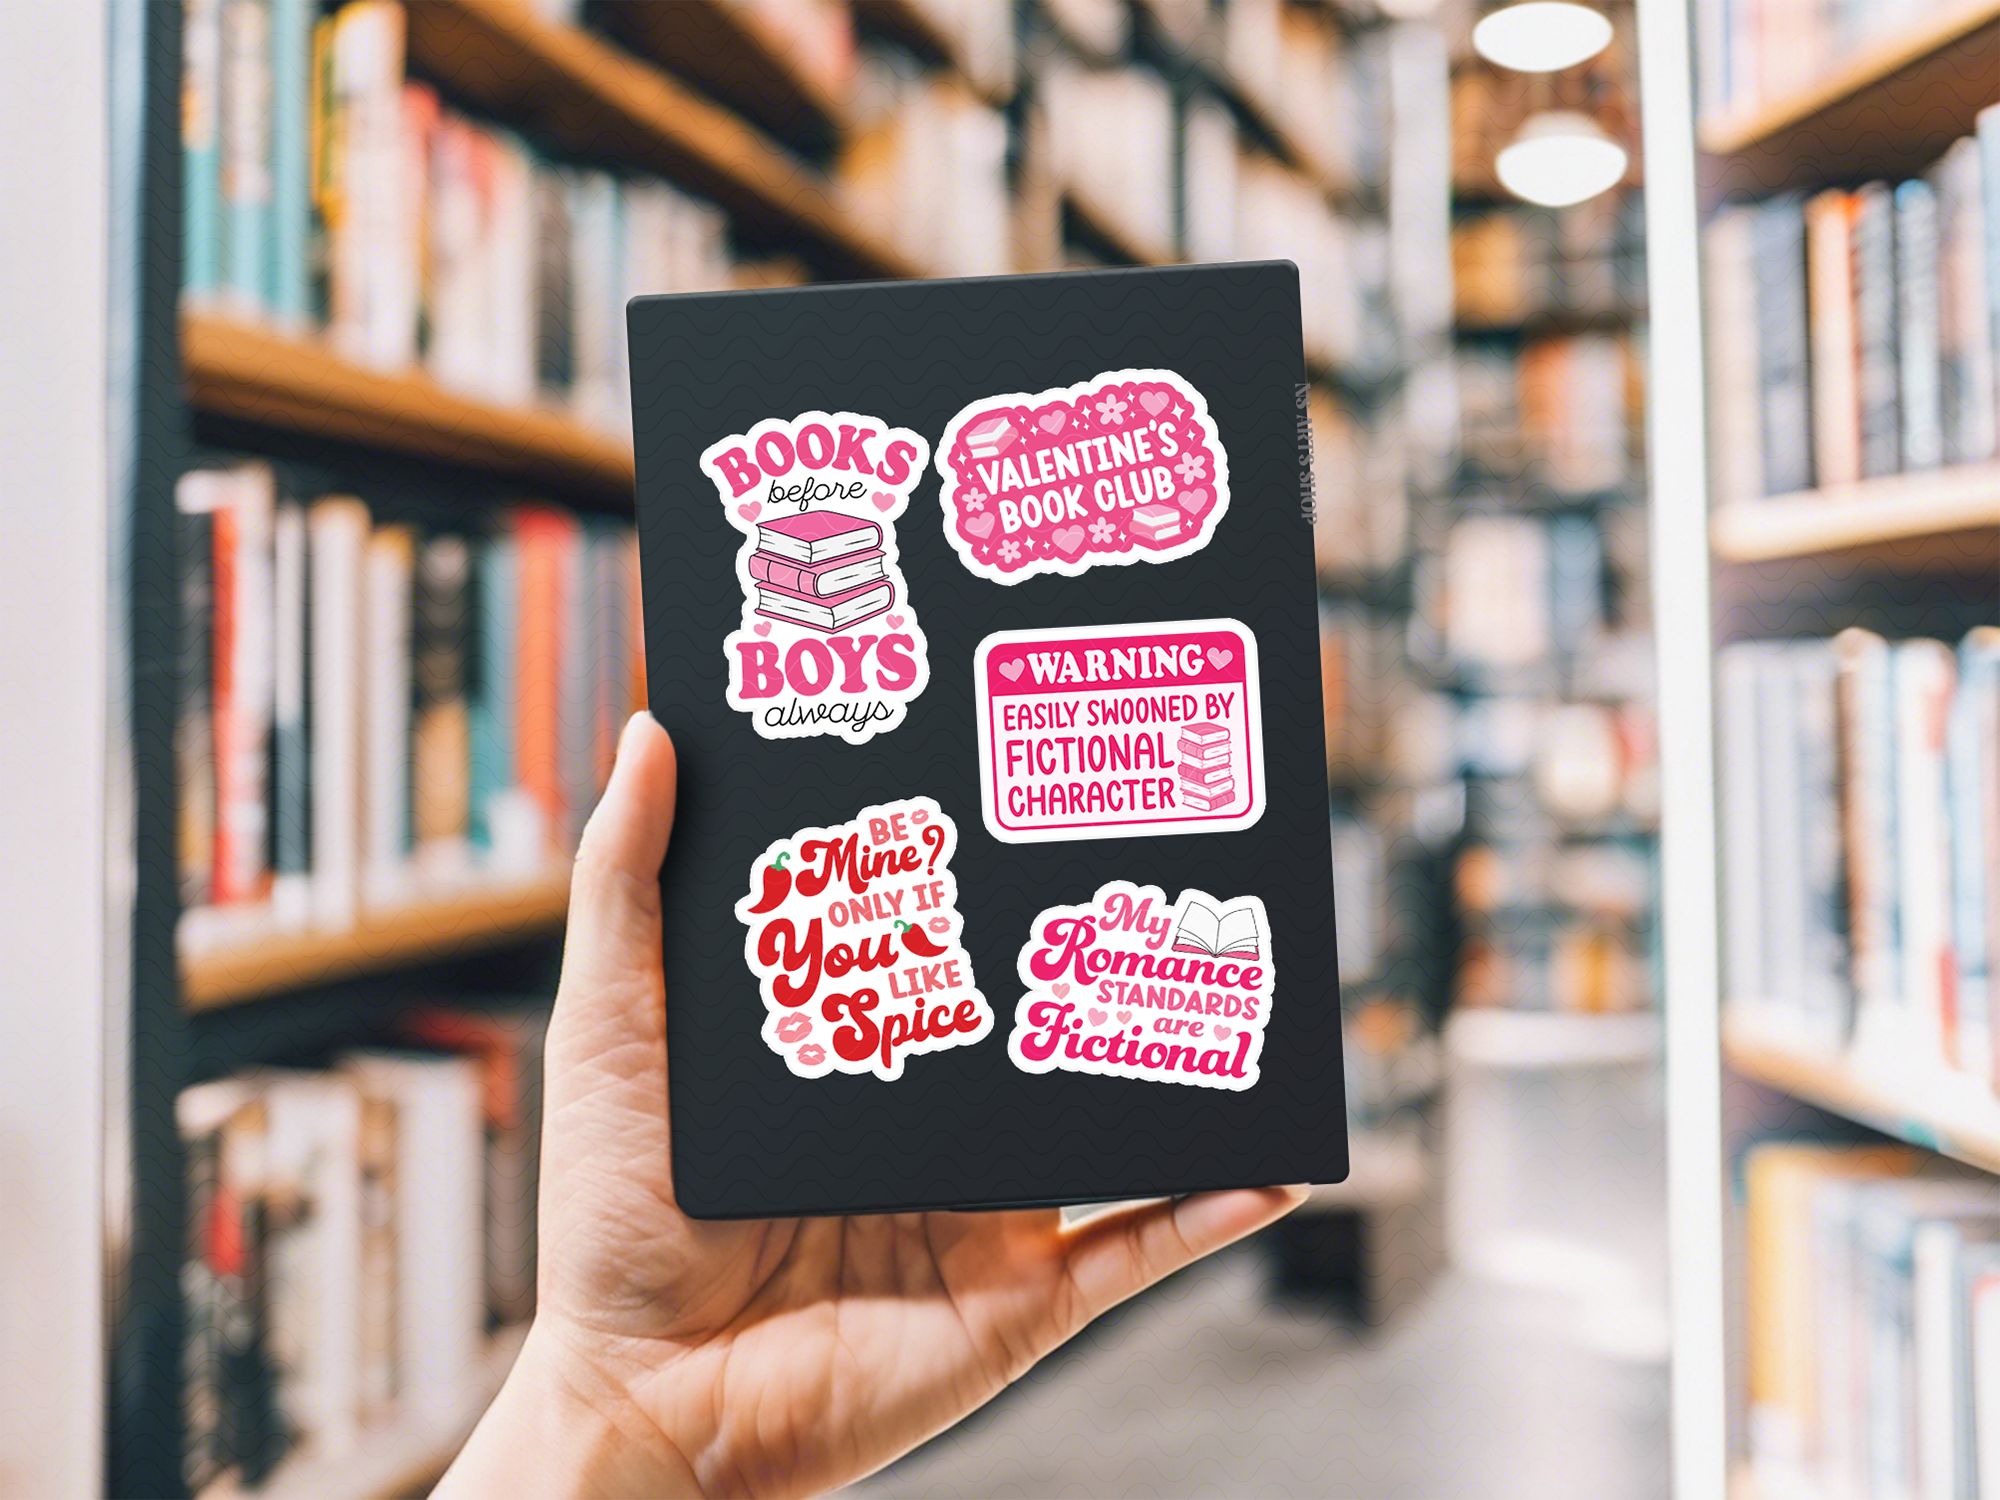 BOOKS
before
BOYS
always
VALENTINE'S
BOOK CLUB
WARNING
EASILY SWOONED BY
FICTIONAL
CHARACTER
BE
Mine?
ONLY IF
You
LIKE
Spice
My
Romance
STANDARDS
are
Fictional
NS ARTS SHOP